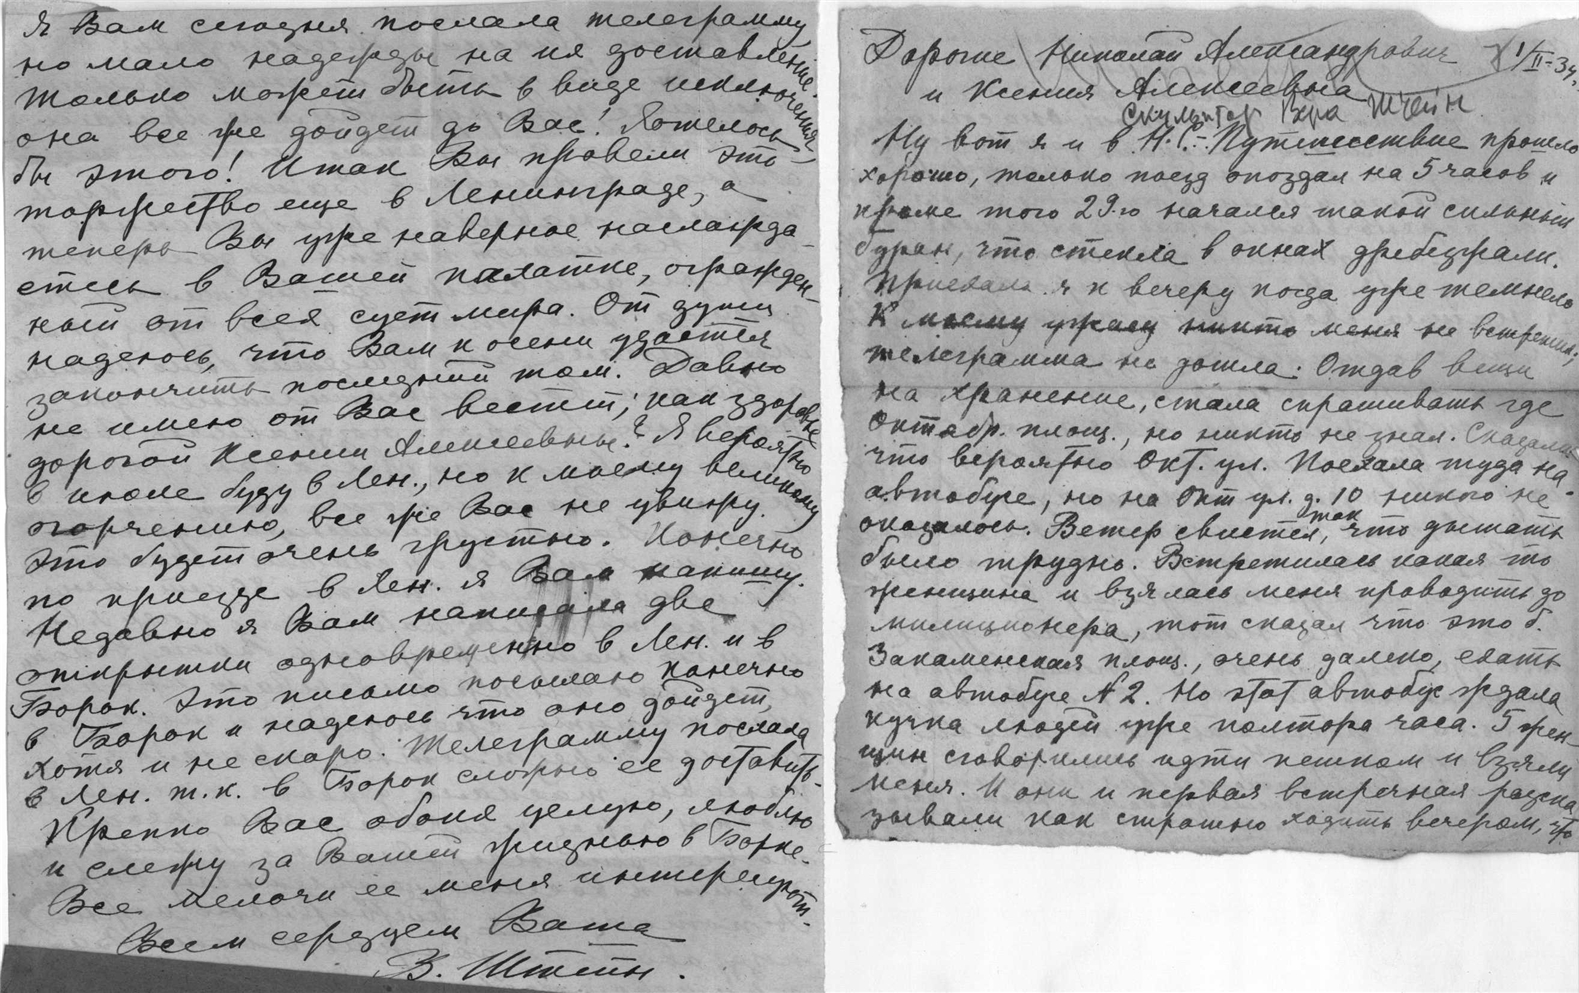 Я Вам сегодня послала телеграмму
но мало надежды на ея доставление.
Только может быть в виде исключения
она все же дойдет до Вас! Хотелось
бы этого! Итак Вы провели это
торжество еще в Ленинграде, а
теперь Вы уже наверное наслажда-
етесь в Вашей палатке, огражден-
ный от всех сует мира. От души
надеюсь, что Вам к осени удастся
закончить последний том. Давно
не имею от Вас вестей; как здоровье
дорогой Ксении Алексеевны? Я вероятно
в июле буду в Лен., но к моему великому
огорчению, все же Вас не увижу.
Это будет очень грустно. Конечно
по приезде в Лен. я Вам напишу.
Недавно я Вам написала две
открытки одновременно в Лен. и в
Борок. Это письмо посылаю конечно
в Борок и надеюсь что оно дойдет,
хотя и не скоро. Телеграмму послала
в Лен. т.к. в Борок сложно ее доставить.
Крепко Вас обоих целую, люблю
и слежу за Вашей жизнью в Борке.
Все мелочи ее меня интересуют.
Всем сердцем Ваша
В. Штейн.
Дорогие Николай Александрович 1/II-34.
и Ксения Алексеевна
скульптор Вера Штейн
Ну вот я и в Н.С. - Путешествие прошло
хорошо, только поезд опоздал на 5 часов и
кроме того 29-го начался такой сильный
буран, что стекла в окнах дребезжали.
Приехала я к вечеру когда уже темнело
К моему ужасу никто меня не встретил;
телеграмма не дошла. Отдав вещи
на хранение, стала спрашивать где
Октябр. площ., но никто не знал. Сказали
что вероятно Окт. ул. Поехала туда на
автобусе, но на Окт ул. д. 10 никого не
оказалось. Ветер свистел так, что дышать
было трудно. Встретилась какая то
женщина и взялась меня проводить до
милиционера, тот сказал что это б.
Закаменская площ., очень далеко, ехать
на автобусе N 2. Но этот автобус ждала
кучка людей уже полтора часа. 5 жен-
щин сговорились идти пешком и взяли
меня. И они и первая встречная расска
зывали как страшно ходить вечером, что